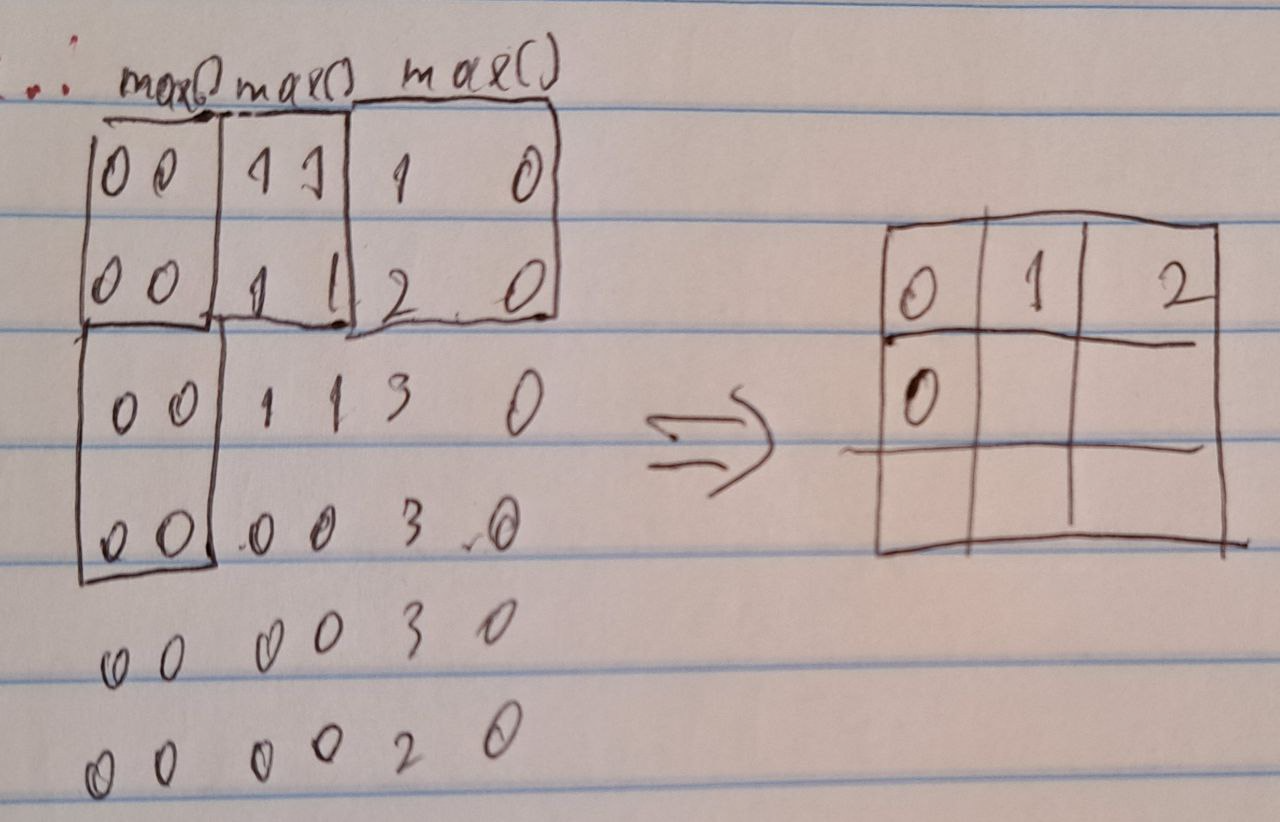 max() max() max()
0 0 1 1 1 0
0 0 1 1 2 0
0 1 2
0 0 1 1 3 0
0
0 0 0 0 3 0
0 0 0 0 3 0
0 0 0 0 2 0